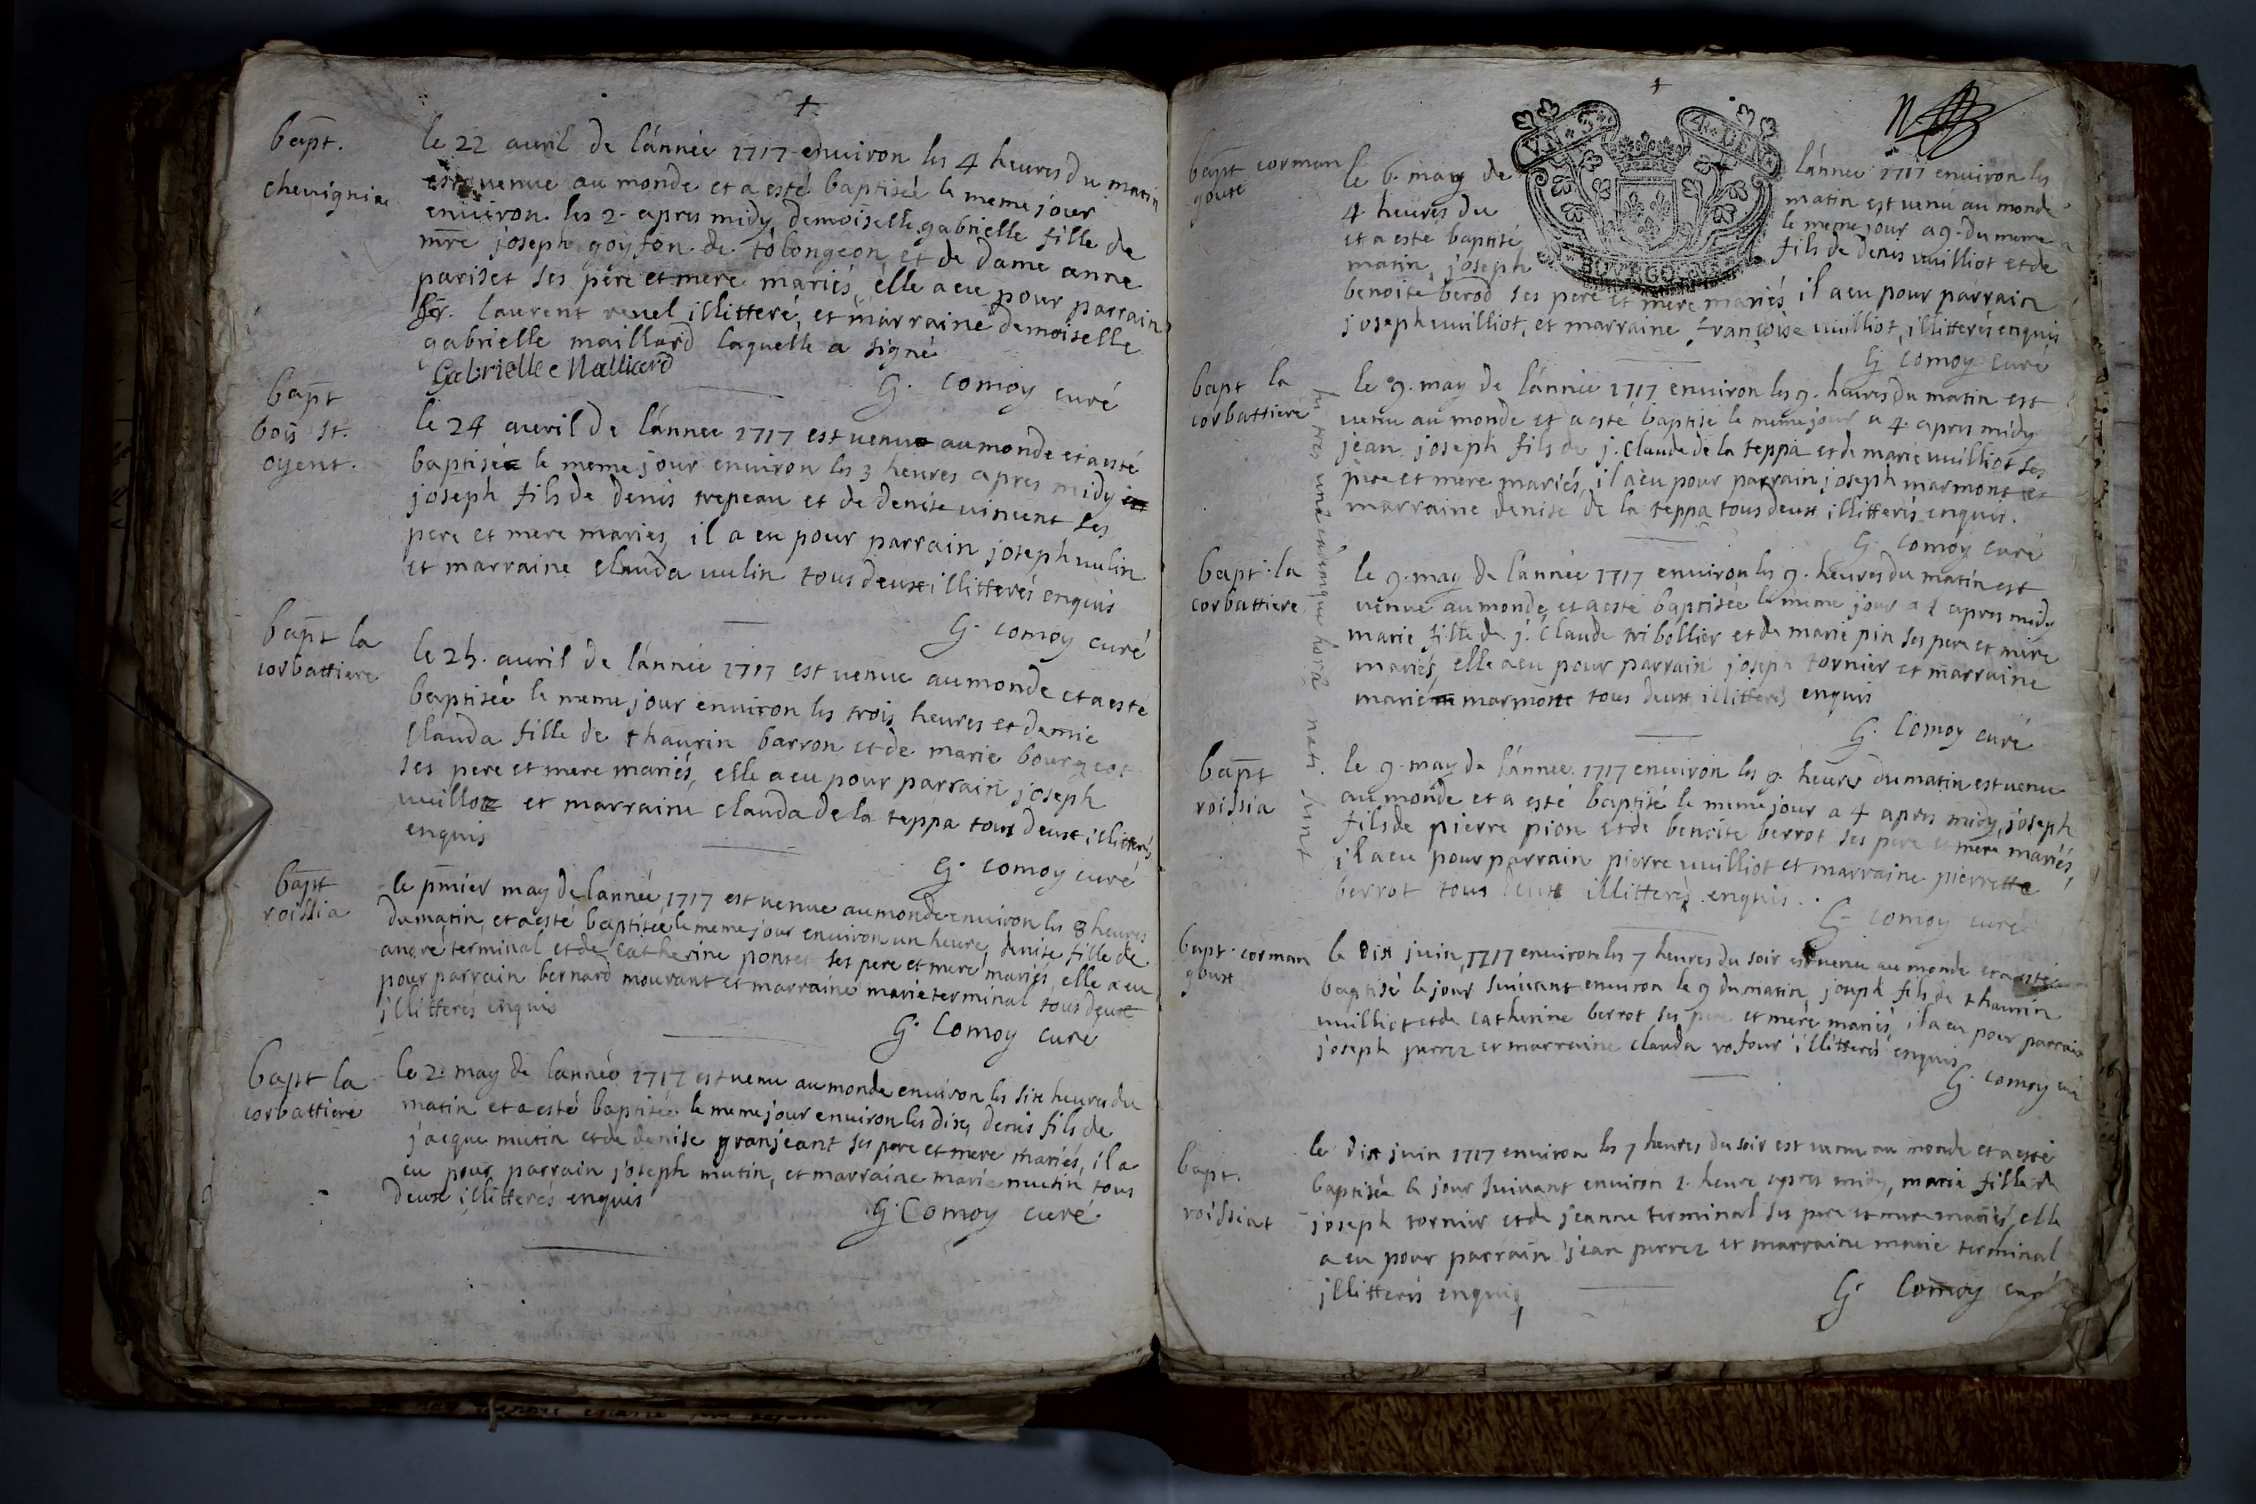 bapt.
chevigniac
le 22 avril de l'année 1717 environ les 4 heures du matin
est venue au monde et a esté baptisée le meme jour
environ les 2. apres midy demoiselle gabrielle fille de
mre joseph goyfon de tolongeon et de dame anne
pariset ses père et mere mariés, elle a eu pour parrain
laurent revel illitteré, et marraine demoiselle
gabrielle maillard laquelle a signé
Gabrielle Malliard
G. comoy curé
bapt
bois st.
oyent.
le 24 avril de l'année 1717 est venu au monde et a esté
baptisé le meme jour environ les 3 heures apres midy
joseph fils de denis trepeau et de denise vincent ses
pere et mere mariés, il a eu pour parrain joseph vulin
et marraine clauda vulin tous deux illitterés enquis
G. comoy curé
bapt la
corbattiere
le 25. avril de l'année 1717 est venue au monde et a esté
baptisée le meme jour environ les trois heures et demie
clauda fille de thaurin barron et de marie bourgeot
ses pere et mere mariés, elle a eu pour parrain joseph
vuillot et marraine clauda de la teppa tous deux illitterés
enquis
G. comoy curé
bapt
roissia
le pmier may de lannée 1717 est venue au monde environ les 8 heures
du matin, et a esté baptisée le meme jour environ un heure, denise fille de
andré terminal et de catherine pontet ses pere et mere mariés, elle a eu
pour parrain bernard mourant et marraine marie terminal tous deux
illitterés enquis
G. Comoy curé
bapt la
corbattiere
le 2. may de lannée 1717 est venu au monde environ les six heures du
matin et a esté baptisé le meme jour environ les dix, denis fils de
jacque mutin et de denise granjeant ses pere et mere mariés, il a
eu pour parrain joseph mutin, et marraine marie mutin tous
deux illitterés enquis
G. Comoy curé
bapt corman
gout
le 6. may de l'année 1717 environ les
4 heures du matin est venu au monde
et a esté baptisé le meme jour a 9. du meme
matin, joseph fils de denis vuilliot et de
benoite berod ses pere et mere mariés il a eu pour parrain
joseph vuilliot, et marraine françoise vuilliot, illitterés enquis
G. comoy curé
bapt la
corbattiere
le 9. may de l'année 1717 environ les 9. heures du matin est
venu au monde et a esté baptisé le meme jour a 4. apres midy
jean joseph fils de j. claude de la teppa et de marie vuilliot ses
pere et mere mariés, il a eu pour parrain joseph marmont et
marraine denise de la teppa tous deux illitterés enquis.
G. comoy curé
bapt. la
corbattiere
le 9. may de l'année 1717 environ les 9. heures du matin est
venue au monde, et a esté baptisée le meme jour a 4 apres midy
marie fille de j. claude tribollier et de marie pin ses pere et mere
mariés, elle a eu pour parrain joseph tornier et marraine
marie marmont tous deux illitterés enquis
G. Comoy curé
hi tres una eademque hora nati sunt
bapt
roissia
le 9. may de l'année 1717 environ les 9. heures du matin est venu
au monde et a esté baptisé le meme jour a 4 apres midy, joseph
fils de pierre pion et de benoite berrot ses pere et mere mariés,
il a eu pour parrain pierre vuilliot et marraine pierrette
berrot tous deux illitterés enquis.
G. comoy curé
bapt. corman
gout
le dix juin, 1717 environ les 7 heures du soir est venu au monde et a esté
baptisé le jour suivant environ le 9 du matin, joseph fils de thaurin
vuilliot et de catherine berrot ses pere et mere mariés, il a eu pour parrain
joseph perrez et marraine clauda refour illitterés enquis
G. comoy curé
bapt.
roissiat
le dix juin 1717 environ les 7 heures du soir est venue au monde et a esté
baptisée le jour suivant environ 1. heure apres midy, marie fille de
joseph tornier et de jeanne terminal ses pere et mere mariés, elle
a eu pour parrain jean perrez et marraine marie terminal
illitterés enquis
G. Comoy curé